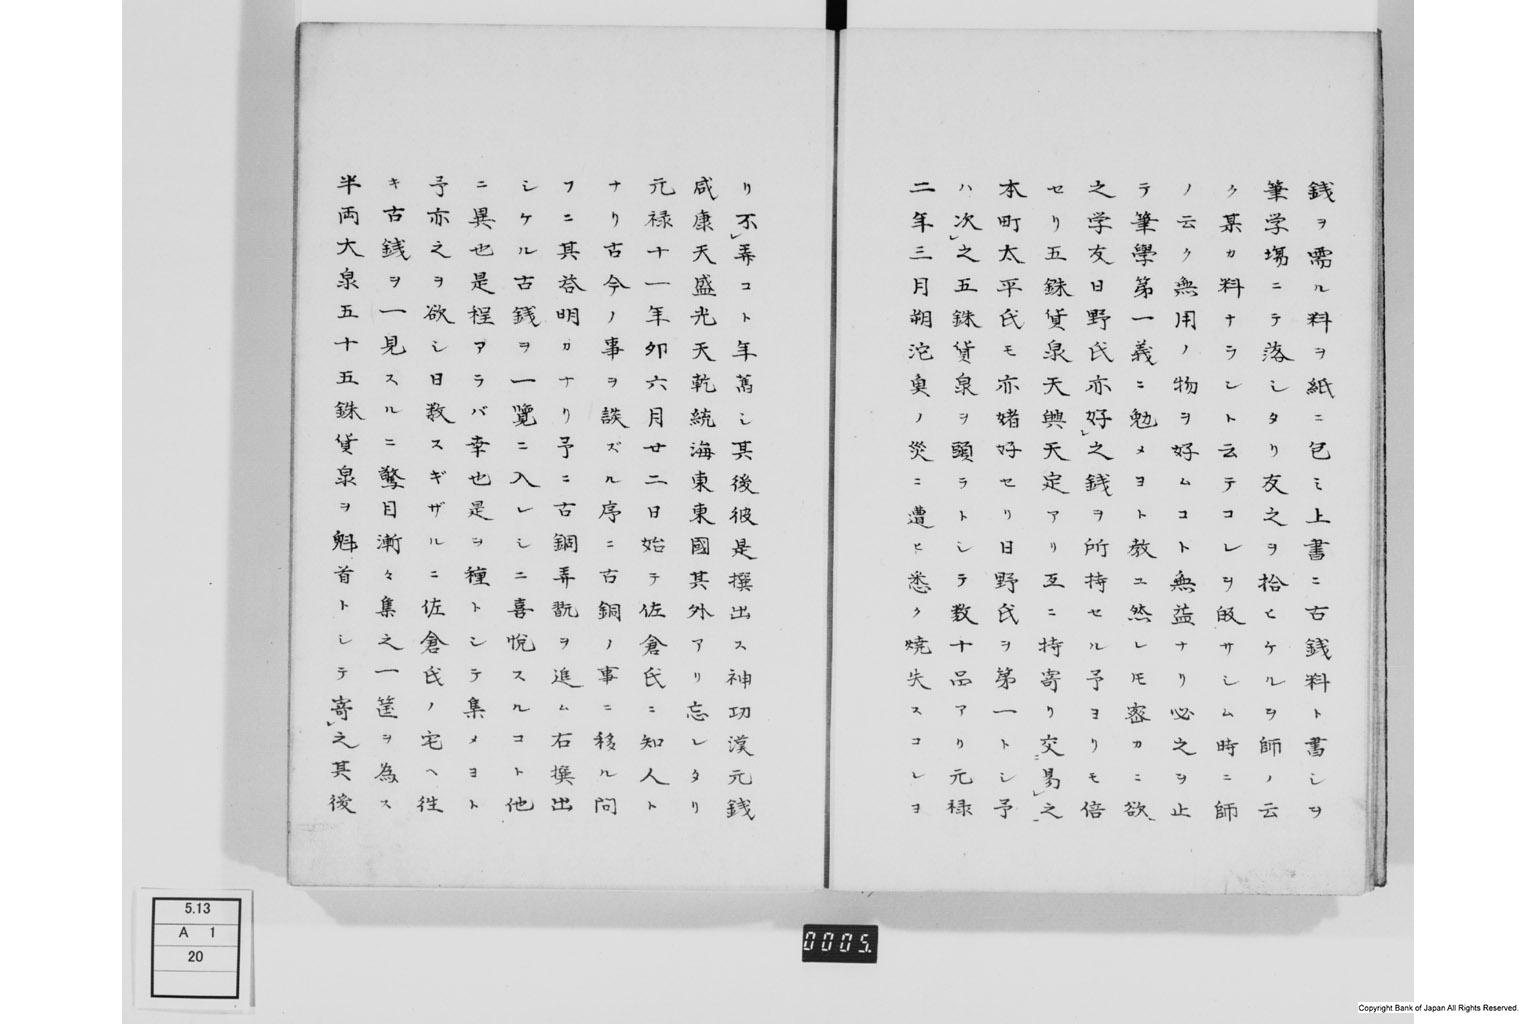 銭ヲ需ル料ヲ紙ニ包ミ上書ニ古銭料ト書シヲ
筆学場ニテ落シタリ友之ヲ拾ヒケルヲ師ノ云
ク某カ料ナラント云テコレヲ皈サシム時ニ師
ノ云ク無用ノ物ヲ好ムコト無益ナリ必之ヲ止
テ筆學第一義ニ勉メヨト教ユ然レモ密カニ欲
之学友日野氏亦好之銭ヲ所持セル予ヨリモ倍
セリ五銖貨泉天興天定アリ互ニ持寄リ交易之
本町太平氏モ亦好セリ日野氏ヲ第一トシ予
ハ次之五銖貨泉ヲ頭ラトシテ数十品アリ元禄
二年三月朔池魚ノ災ニ遭ヒ悉ク焼失スコレヨ
リ不弄コト年萬シ其後彼是撰出ス神功漢元銭
咸康天盛光天乾統海東東國其外アリ忘レタリ
元禄十一年卯六月廿二日始テ佐倉氏ニ知人ト
ナリ古今ノ事ヲ談ズル序ニ古銅ノ事ニ移ル問
フニ其答明カナリ予ニ古銅弄翫ヲ進ム右撰出
シケル古銭ヲ一覽ニ入レシニ喜悦スルコト他
ニ異也是程アラバ幸也是ヲ種トシテ集メヨト
予亦之ヲ欲シ日数スギザルニ佐倉氏ノ宅ヘ徃
キ古銭ヲ一見スルニ驚目漸々集之一筐ヲ為ス
半両大泉五十五銖貨泉ヲ魁首トシテ寄之其後
5.13
A 1
20
0005
Copyright Bank of Japan All Rights Reserved.